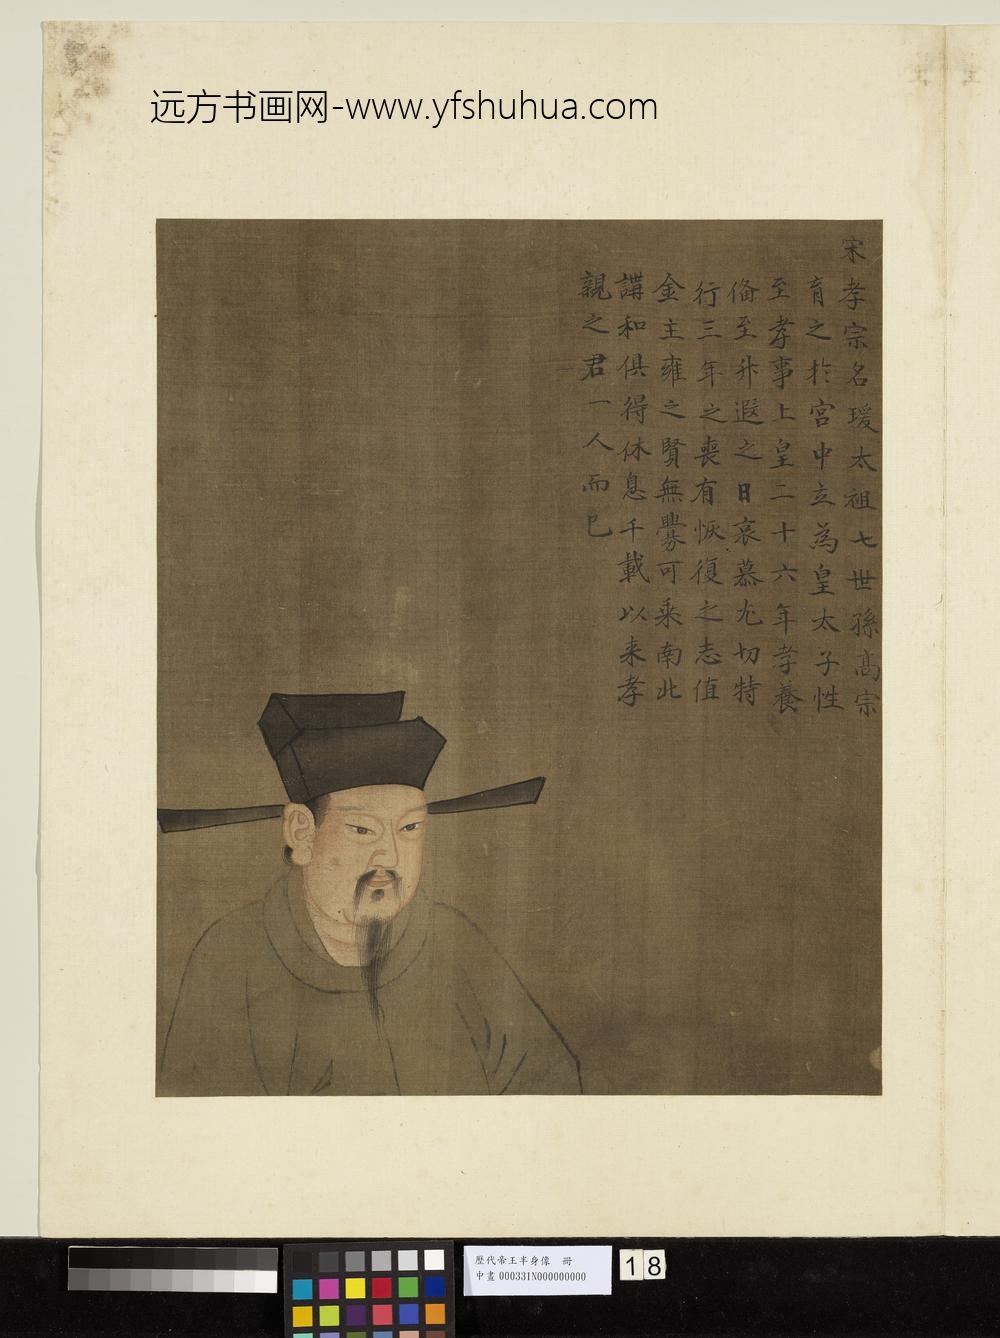 远方书画网-www.yfshuhua.com
宋孝宗名瑗太祖七世孫高宗
育之於宮中立為皇太子性
至孝事上皇二十六年孝養
俻至升遐之日哀慕尤切特
行三年之喪有恢復之志值
金主雍之賢無釁可乘南北
講和俱得休息千載以来孝
親之君一人而已
歷代帝王半身像 冊
中畫000331N000000000
18